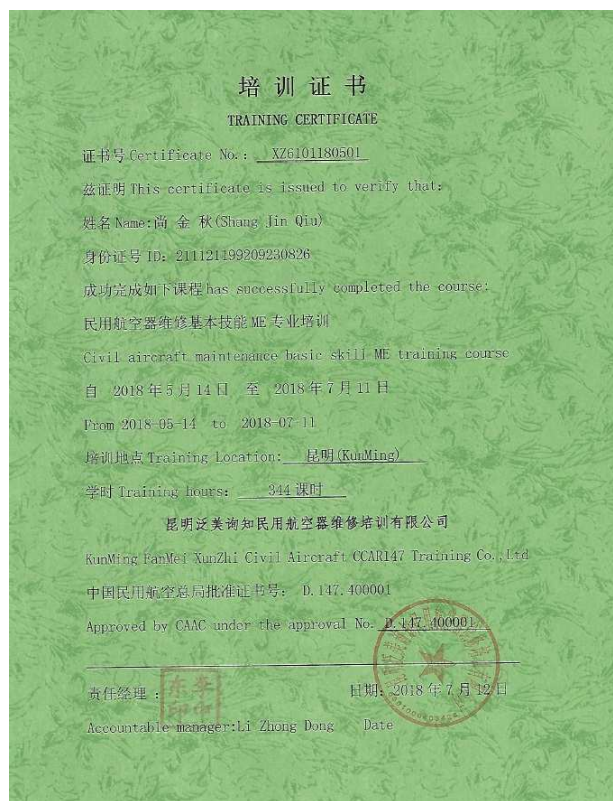 培训证书
TRAINING CERTIFICATE
证书号 Certificate No.: XZ6101180501
兹证明 This certificate is issued to verify that:
姓名 Name:尚 金 秋(Shang Jin Qiu)
身份证号 ID: 211121199209230826
成功完成如下课程 has successfully completed the course:
民用航空器维修基本技能 ME 专业培训
Civil aircraft maintenance basic skill ME training course
自 2018 年 5 月 14 日 至 2018 年 7 月 11 日
From 2018-05-14 to 2018-07-11
培训地点 Training Location: 昆明(KunMing)
学时 Training hours: 344 课时
昆明泛美询知民用航空器维修培训有限公司
KunMing FanMei XunZhi Civil Aircraft CCAR147 Training Co.,Ltd
中国民用航空总局批准证书号: D.147.400001
Approved by CAAC under the approval No. D.147.400001
责任经理: 日期: 2018 年 7 月 12 日
李中东印
Accountable manager:Li Zhong Dong Date